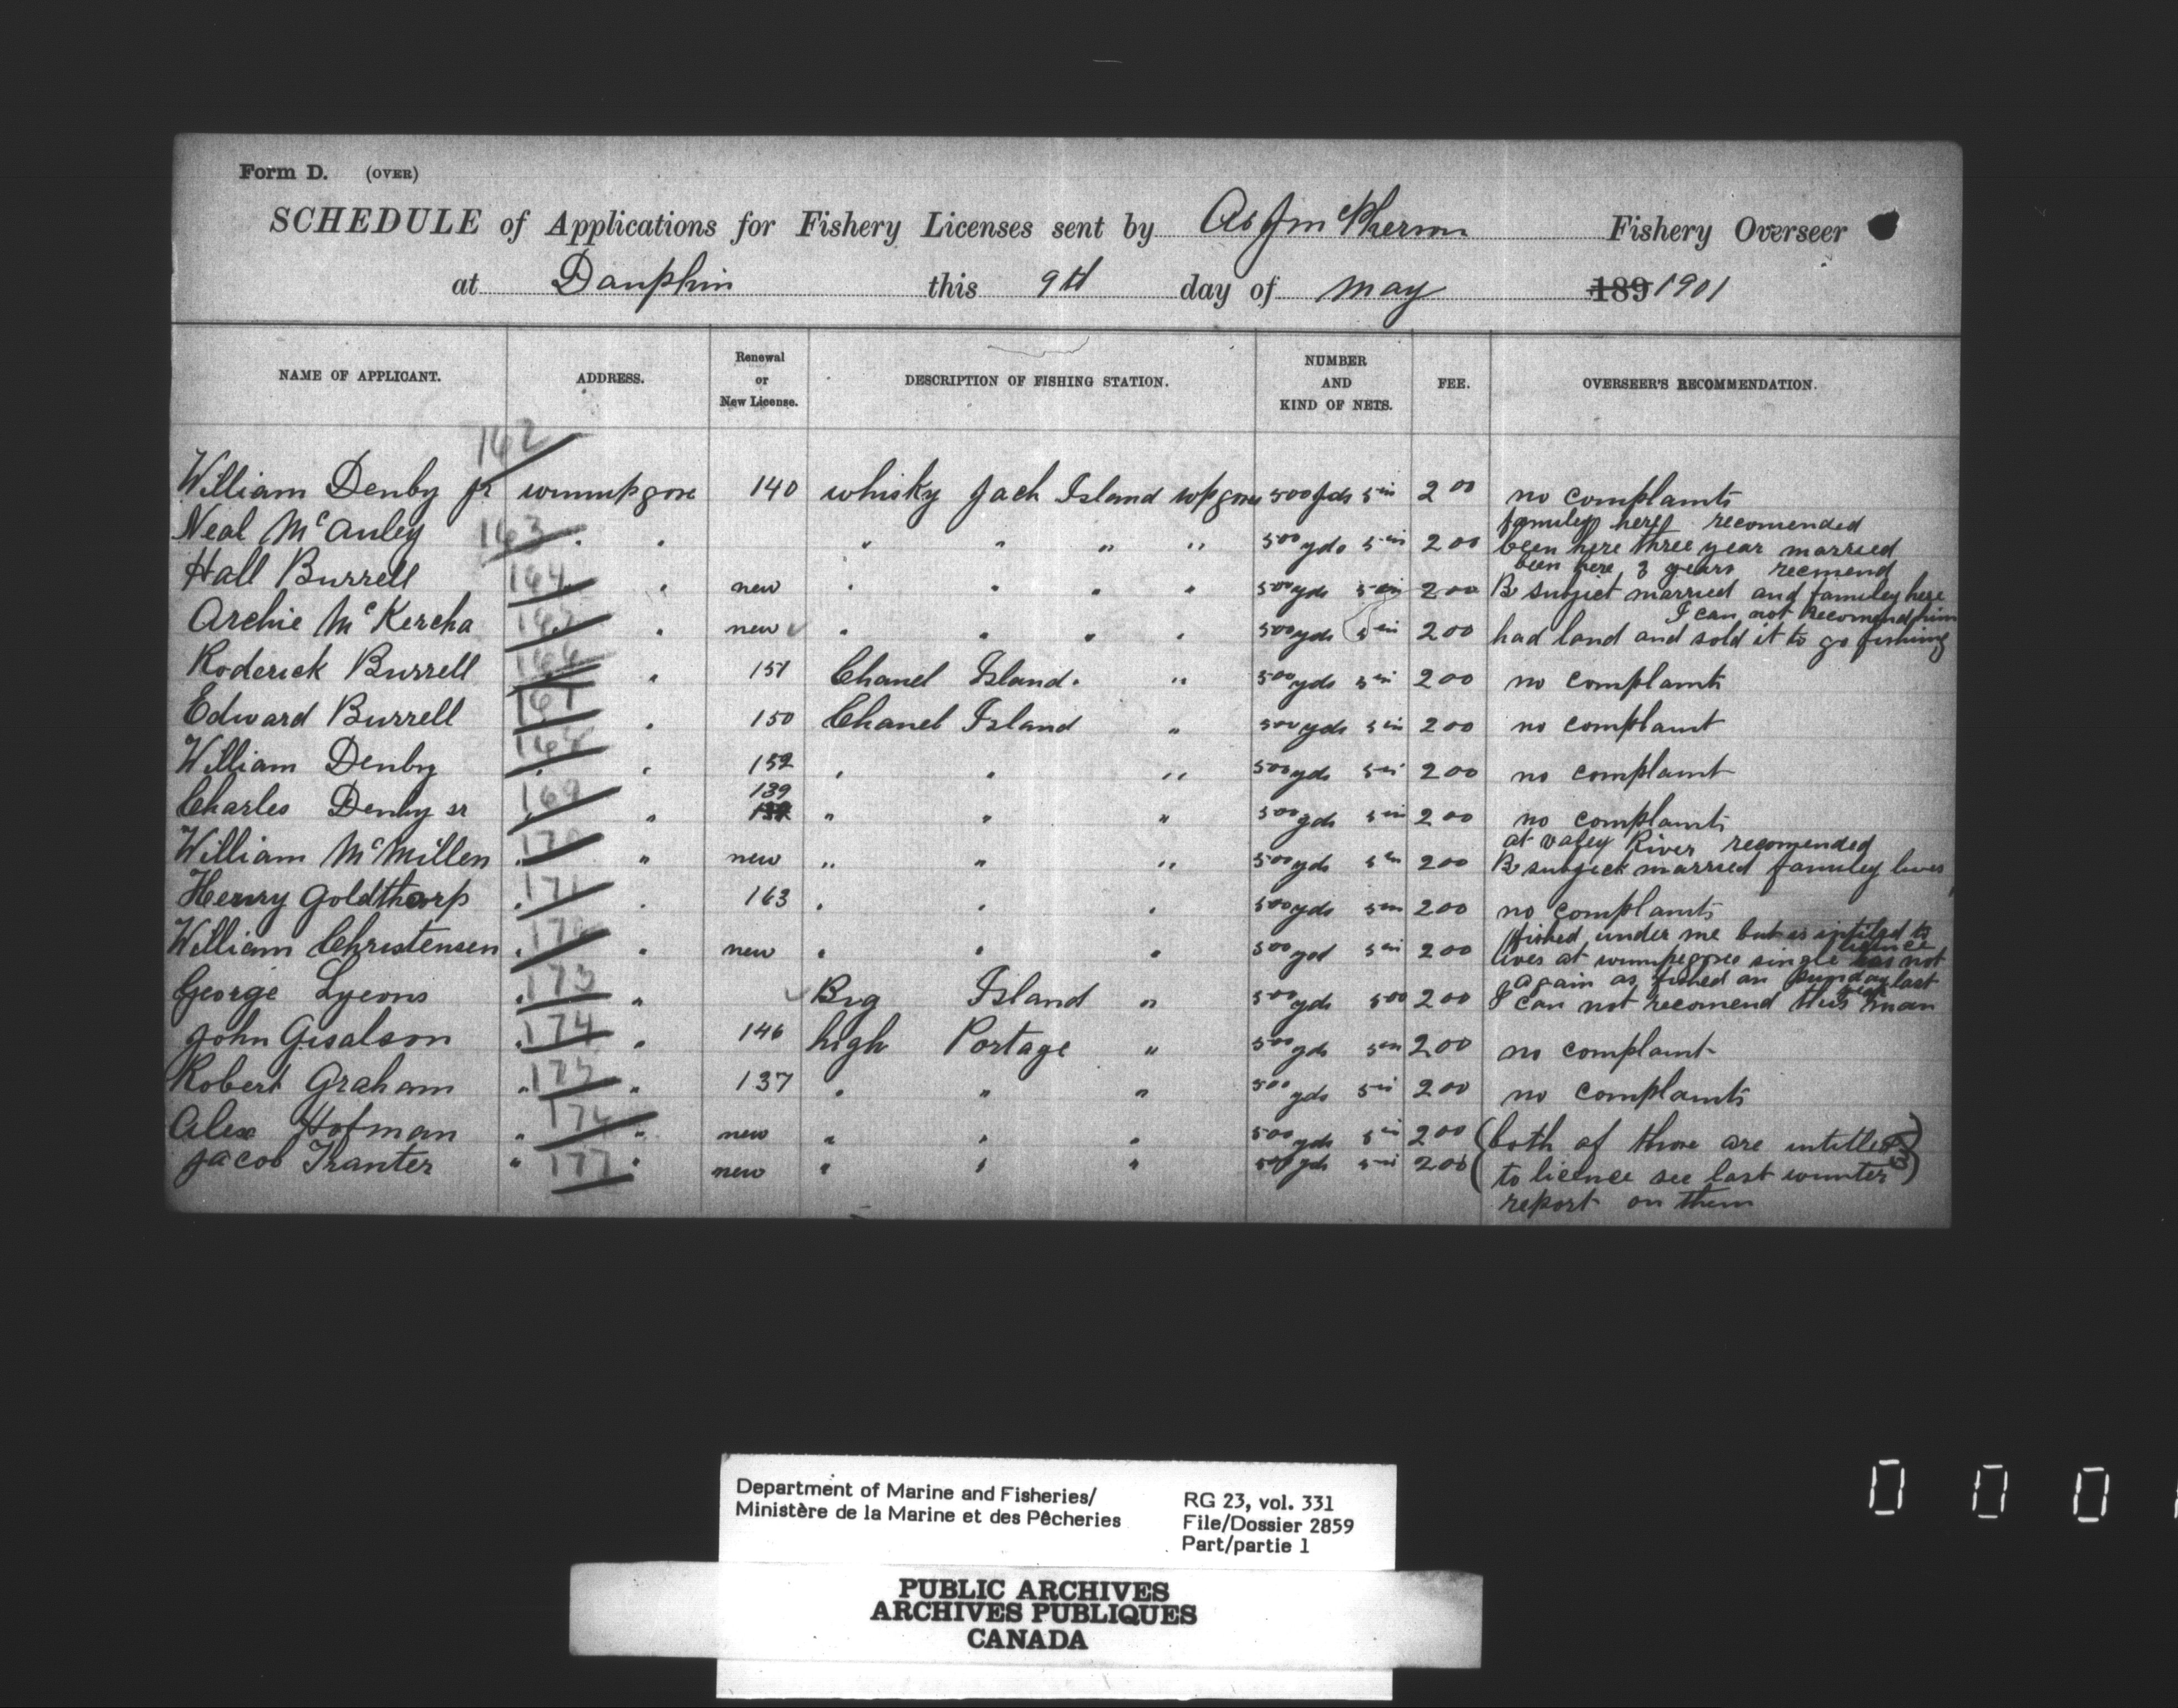 Form D. (OVER)
SCHEDULE of Applications for Fishery Licenses sent by McPherson Fishery Overseer
at Dauphin this 9th day of may 189 1901
NAME OF APPLICANT. ADDRESS. Renewal or New License. DESCRIPTION OF FISHING STATION. NUMBER AND KIND OF NETS. FEE. OVERSEER'S RECOMMENDATION.
162
William Denby jr 140 whisky Jack Island 500 yds 5 in 2 00 no complaints
Neal McAuley 163 " " " " " " 500 yds 5 in 2 00 familey here recomended
been here three year married
Hall Burrell 164 " " new " " " " 500 yds 5 in 2 00 been here 3 years recmend
B subject married and familey here
Archie McKercha 165 " new " " " " 500 yds 5 in 2 00 I can not recomend him
had land and sold it to go fishing
Roderick Burrell 166 " 151 Chanel Island " 500 yds 5 in 2 00 no complaints
Edward Burrell 167 " 150 Chanel Island " 500 yds 5 in 2 00 no complaint
William Denby 168 " " 152 " " " 500 yds 5 in 2 00 no complaint
139
Charles Denby sr 169 " " " " " 500 yds 5 in 2 00 no complaints
William McMillen " 170 " new " " " 500 yds 5 in 2 00 at valey River recomended
B subjeck married familey lives
Henry Goldthorp " 171 " 163 " " " 500 yds 5 in 2 00 no complaints
William Christensen " 172 " new " " " 500 yds 5 in 2 00 fished under me but is intitled to licence
lives at winnipegosis single has not
George Lyeons " 173 " Big Island " 500 yds 500 2 00 again as fished on Sunday last
I can not recomend this man
John Gisalson " 174 " 146 high Portage " 500 yds 5 in 2 00 no complaint
Robert Graham " 175 " 137 " " " 500 yds 5 in 2 00 no complaints
Alex Hofman " 176 " new " " " 500 yds 5 in 2 00 both of those are intitled
Jacob Tranter " 177 " new " " " 500 yds 5 in 2 00 to licence see last winter
report on them
Department of Marine and Fisheries/
Ministère de la Marine et des Pêcheries
RG 23, vol. 331
File/Dossier 2859
Part/partie 1
PUBLIC ARCHIVES
ARCHIVES PUBLIQUES
CANADA
0 0 0